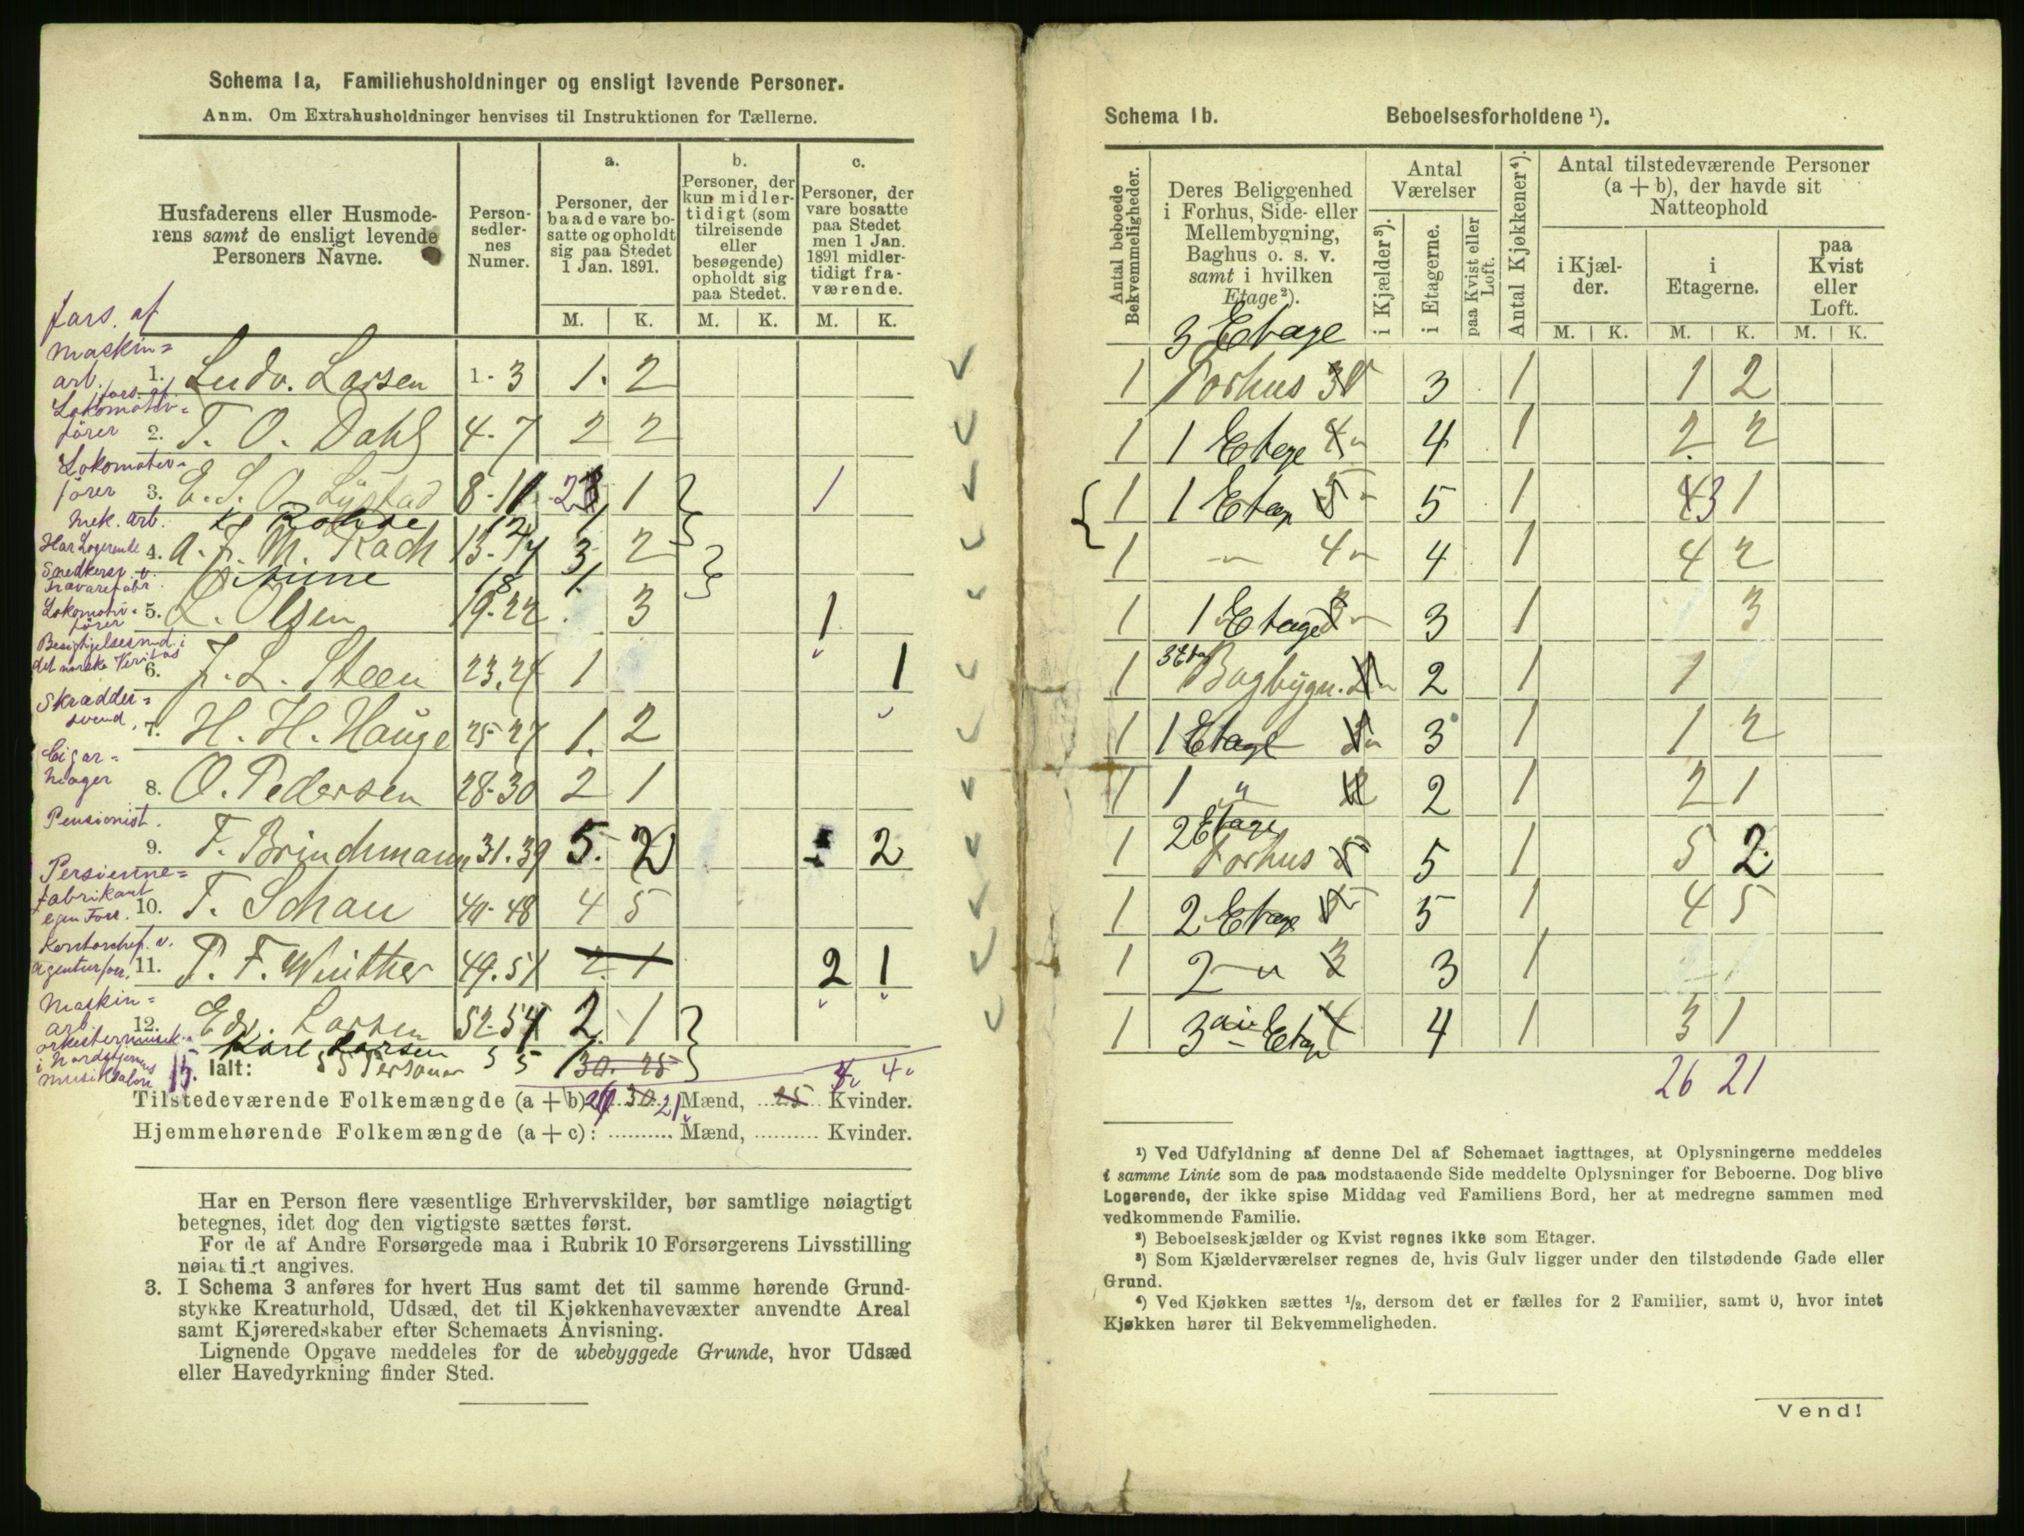 Schema 1a, Familiehusholdninger og ensligt levende Personer.
Anm. Om Extrahusholdninger henvises til Instruktionen for Tællerne.
Husfaderens eller Husmoderens samt de ensligt levende Personers Navne.
Personsedlernes Numer.
a. Personer, der baade vare bosatte og opholdt sig paa Stedet 1 Jan. 1891.
b. Personer, der kun midlertidigt (som tilreisende eller besøgende) opholdt sig paa Stedet.
c. Personer, der vare bosatte paa Stedet men 1 Jan. 1891 midlertidigt fraværende.
M. K. M. K. M. K.
fors. af
Maskinarb. 1. Ludv. Larsen 1-3 1. 2
fors. af Lokomotivfører 2. T. O. Dahl 4-7 2 2
Lokomotivfører 3. E. S. O. Lystad 8-11 2 1 1
Mek. arb. Rohde 12 1
Har Logerende 4. A. J. M. Koch 13-17 3 2
Snedkersv. v. Trævarefabr. 18 1.
Lokomotivfører 5. L. Olsen 19-22 3 1
Besigtjelsesmd. i det norske Veritas 6. J. L. Steen 23.24 1 1
Skræddersvend 7. H. H. Hauge 25-27 1. 2
Cigarmager 8. O. Pedersen 28-30 2 1
Pensionist. 9. F. Brinchmann 31.39 5. 2 2
Persiennefabrikant egen Forr. 10. T. Schau 40-48 4 5
Kontorchef v. Agenturforr. 11. P. F. Winther 49.51 2. 1 2 1
Maskinarb. 12. Edv. Larsen 52-54 2. 1
orkestermusik. i Nordstjernens Musiksalon Karl Larsen 55 1
15. Ialt: 55 Personer 30. 25 4 4
Tilstedeværende Folkemængde (a + b) 26 30 21 Mænd, 25 Kvinder.
Hjemmehørende Folkemængde (a + c): .......... Mænd, .......... Kvinder.
Har en Person flere væsentlige Erhvervskilder, bør samtlige nøiagtigt
betegnes, idet dog den vigtigste sættes først.
For de af Andre Forsørgede maa i Rubrik 10 Forsørgerens Livsstilling
nøiagtigt angives.
3. I Schema 3 anføres for hvert Hus samt det til samme hørende Grund-
stykke Kreaturhold, Udsæd, det til Kjøkkenhavevæxter anvendte Areal
samt Kjøreredskaber efter Schemaets Anvisning.
Lignende Opgave meddeles for de ubebyggede Grunde, hvor Udsæd
eller Havedyrkning finder Sted.
Schema 1b. Beboelsesforholdene ¹).
Antal beboede Bekvemmeligheder.
Deres Beliggenhed i Forhus, Side- eller Mellembygning, Baghus o. s. v. samt i hvilken Etage²).
Antal Værelser
i Kjælder³). i Etagerne. paa Kvist eller Loft.
Antal Kjøkkener⁴).
Antal tilstedeværende Personer (a + b), der havde sit Natteophold
i Kjælder. i Etagerne. paa Kvist eller Loft.
M. K. M. K. M. K.
3 Etage
1 Forhus 3 3 1 1 2
1 1 Etage 4 4 1 2 2
1 1 Etage 5 5 1 3 1
1 " 4 4 1 4 2
1 1 Etage 3 3 1 3
1 3 Etag Bagbygn. 2 2 1 1
1 1 Etage 3 1 1 2
1 1 " 2 2 1 2 1
2 Etage
1 Forhus 5 5 1 5 2
1 2 Etage 5 5 1 4 5
1 2 " 3 3 1
1 3die Etage 4 4 1 3 1
26 21
¹) Ved Udfyldning af denne Del af Schemaet iagttages, at Oplysningerne meddeles
i samme Linie som de paa modstaaende Side meddelte Oplysninger for Beboerne. Dog blive
Logerende, der ikke spise Middag ved Familiens Bord, her at medregne sammen med
vedkommende Familie.
²) Beboelseskjælder og Kvist regnes ikke som Etager.
³) Som Kjælderværelser regnes de, hvis Gulv ligger under den tilstødende Gade eller
Grund.
⁴) Ved Kjøkken sættes ½, dersom det er fælles for 2 Familier, samt 0, hvor intet
Kjøkken hører til Bekvemmeligheden.
Vend!